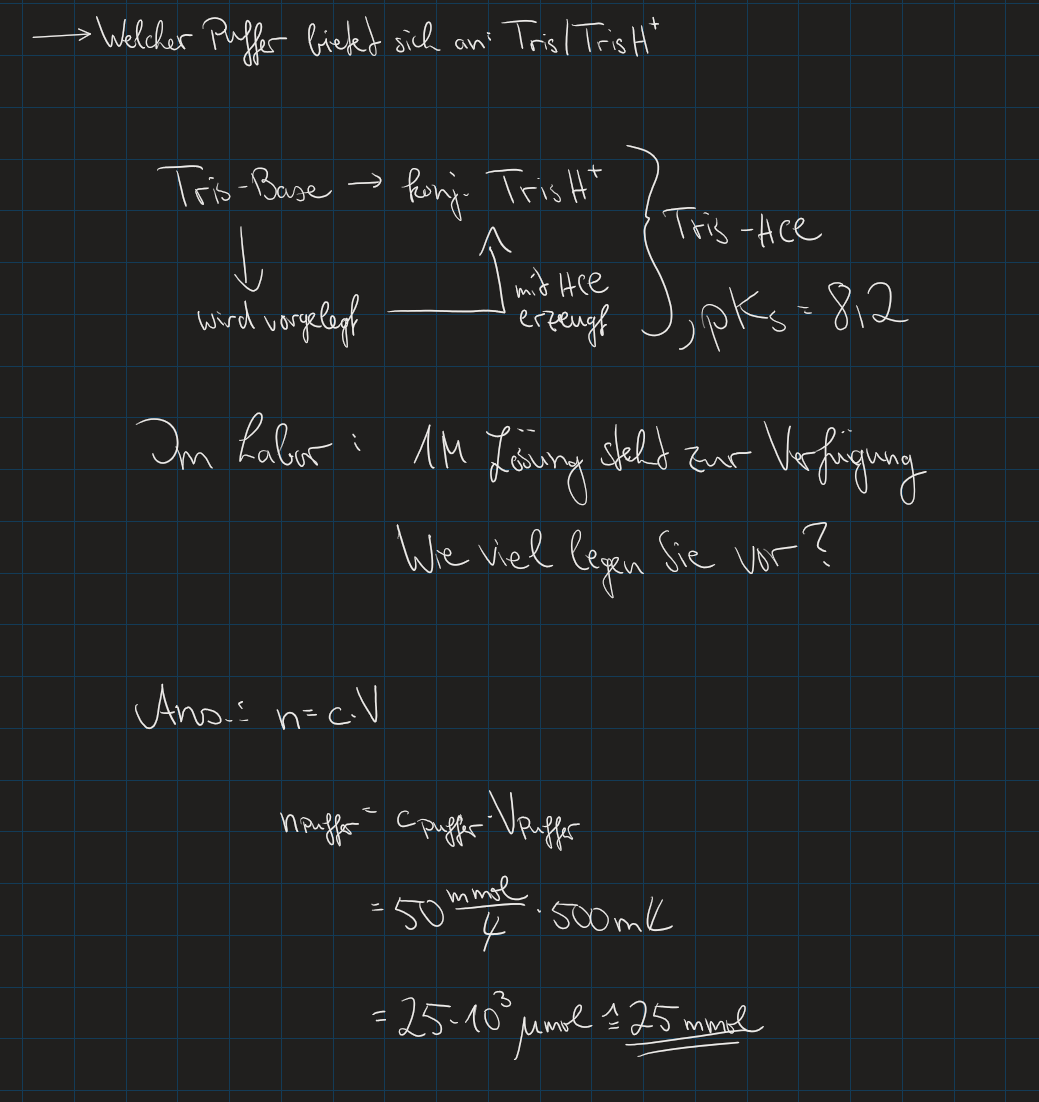 → Welcher Puffer bietet sich an: Tris/TrisH⁺
Tris-Base → konj. TrisH⁺
Tris-HCl
mit HCl
wird vorgelegt erzeugt
, pKs = 8,2
Im Labor: 1M Lösung steht zur Verfügung
Wie viel legen Sie vor?
Ans.: n = c·V
nPuffer = cPuffer · VPuffer
= 50 mmol/L · 500 mL
= 25·10³ µmol ≙ 25 mmol